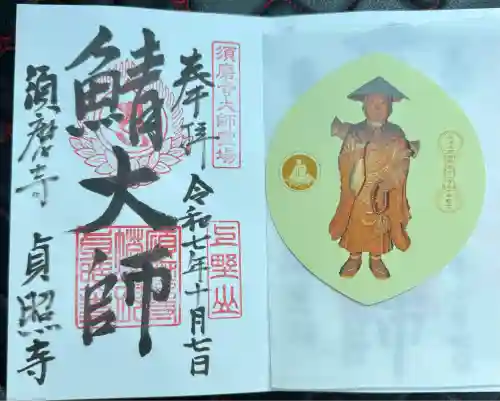 須磨寺大師霊場
奉拝
令和七年十月七日
上野山
鯖大師
須磨寺
貞照寺